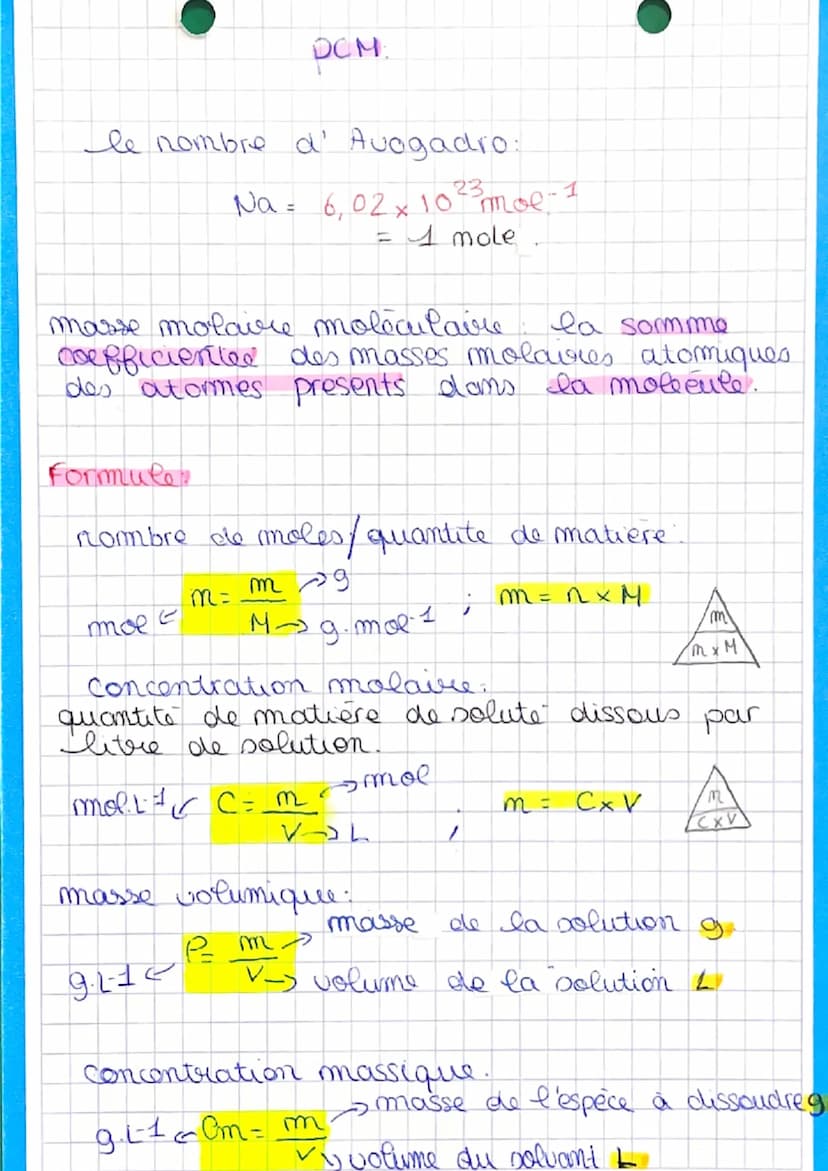 PCM.
le nombre d'Avogadro:
Na = 6,02 x 10²³ mol⁻¹
= 1 mole.
masse molaire moléculaire : la somme
coefficientée des masses molaires atomiques
des atomes presents dans la molécule.
Formule:
nombre de moles/quantite de matiere:
mol ← n = m/M → g → g.mol-1 ; m = n x M
m
n x M
concentration molaire:
quantité de matière de soluté dissous par
litre de solution.
mol.L-1 ↙ C = n/V → mol → L ; n = C x V
n
C x V
masse volumique:
g.L-1 ← ρ = m/V → masse de la solution g
→ volume de la solution L
concentration massique.
g.L-1 ← Cm = m/V → masse de l'espèce à dissoudre g
↘ volume du solvant L